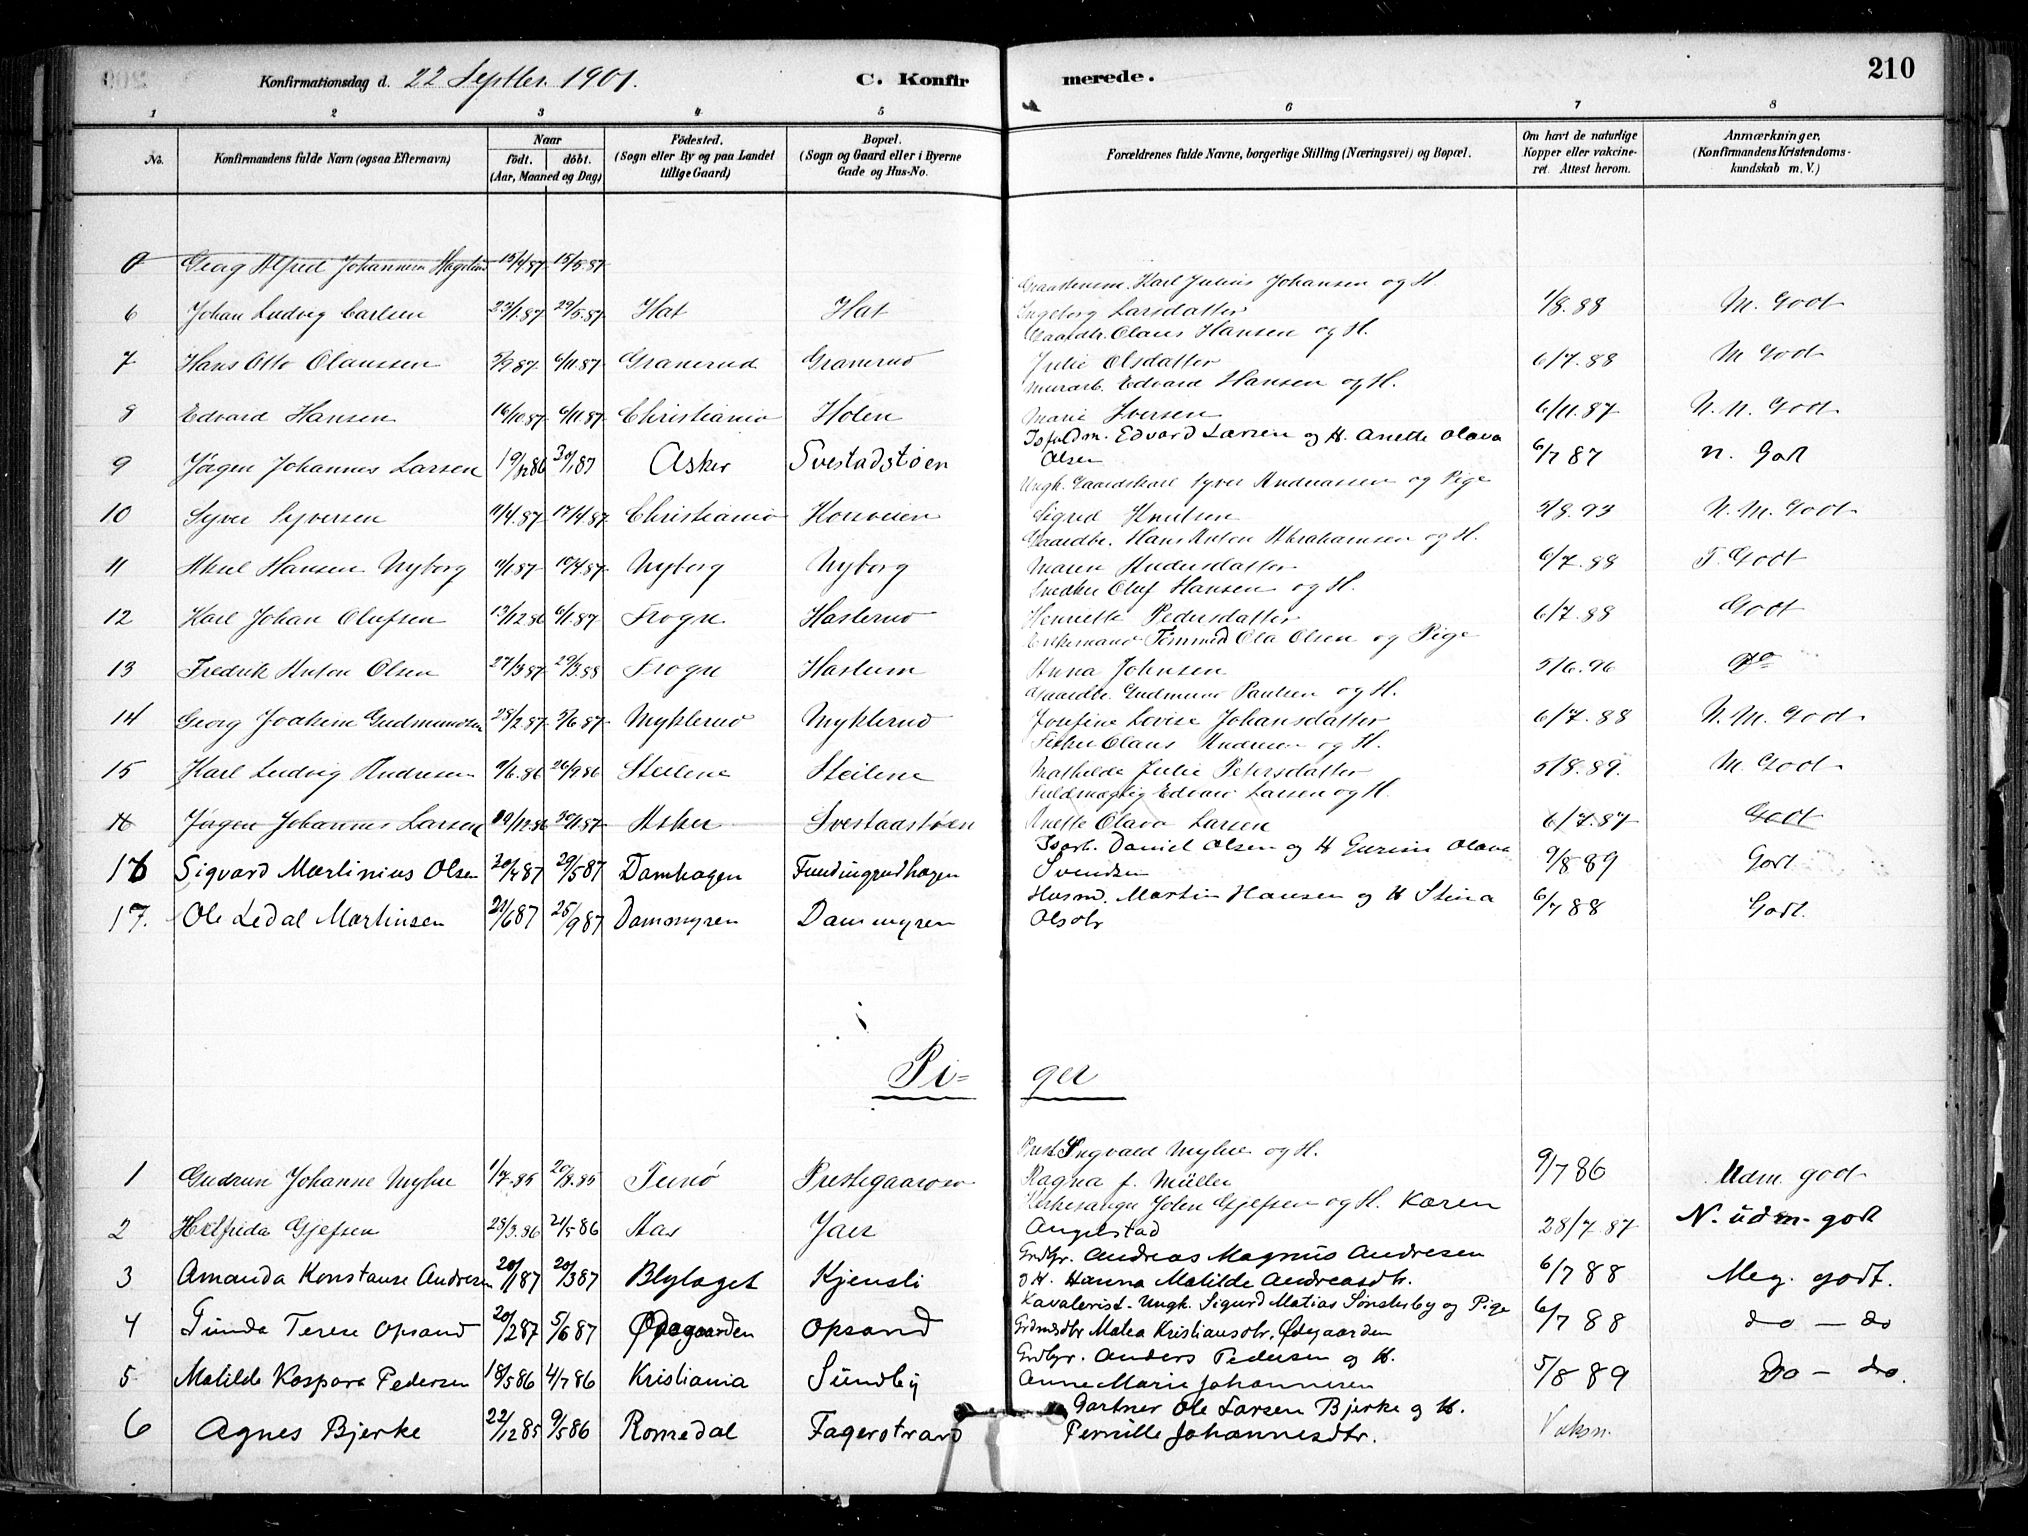 210
Konfirmationsdag d. 22 Septbr. 1901. C. Konfirmerede.
1 2 3 4 5 6 7 8
No. Konfirmandens fulde Navn (ogsaa Efternavn) Naar födt. döbt. (Aar, Maaned og Dag) Födested. (Sogn eller By og paa Landet tillige Gaard) Bopæl. (Sogn og Gaard eller i Byerne Gade og Hus-No. Forældrenes fulde Navne, borgerlige Stilling (Næringsvei) og Bopæl. Om havt de naturlige Kopper eller vakcineret. Attest herom. Anmærkninger. (Konfirmandens Kristendomskundskab m. V.)
Georg Alfred Johannesen 15/4 87 15/5 87
Karl Julius Johansen og H.
6 Johan Ludvig Carlsen 29/5 87 Hat Hat Ingeborg Larsdatter 1/8. 88 M. Godt
Gaardbr. Olaus Hansen og H.
7 Hans Otto Olaussen 3/9 87 6/11 87 Granerud Granerud Julie Olsdatter 6/7. 88 M God
Murarb. Edvard Hansen og H.
8 Edvard Hansen 16/10 87 6/11 87 Christiania Holen Marie Iversen 6/11. 87 N. M. Godt
Edvard Larsen og H. Anette Olava
9 Jørgen Johannes Larsen 19/12 86 30/1 87 Asker Svestadstøen Olsen 6/7 87 N. Godt
Ungk. Gaardskarl Syver Andreassen og Pige
10 Syver Syversen 11/4 87 17/4 87 Christiania Sigrid Knutsen 5/8. 93 N. M. Godt
Gaardbr. Hans Anton Abrahamsen og H.
11 Aksel Hansen Nyborg 11/1 87 10/4 87 Nyborg Nyborg Maren Andersdatter 6/7. 88 T. Godt
Snedker Oluf Hansen og H.
12 Karl Johan Olufsen 13/12 86 6/1 87 Frogn Haslerud Henriette Pedersdatter 6/7. 88 Godt
Enkemand Tømmed Ola Olsen og Pige
13 Fredrik Anton Olsen 27/3 87 29/3 88 Frogn Haslum Anna Johnsen 5/6. 96 do
Gaardbr. Gudmund Paulsen og H.
14 Georg Joakim Gudmundsen 28/2 87 5/6 87 Myklerud Myklerud Josefine Lovise Johansdatter 6/7. 88 N. M. God.
Fisker Olaus Andresen og H.
15 Karl Ludvig Andresen 9/6 86 26/9 86 Steilene Steilene Mathilde Julie Petersdatter 5/8. 89. M. Godt
Fuldmægtig Edvard Larsen og H.
16 Jørgen Johannes Larsen 19/12 86 30/1 87 Asker Svestadstøen Anette Olava Larsen 6/7. 87 Godt
Daniel Olsen og H Gurine Olava
16 Sigvard Martinius Olsen 30/4 87 29/5 87 Damhagen Fundingrudhagen Svendsen 9/8 89 Godt
Husmd. Martin Hansen og H Stina
17. Ole Ledal Martinsen 21/6 87 25/9 87 Dammyren Dammyren Olsdtr 6/7 88 Godt.
Piger
Prest Ingvald Myhre og H.
1 Gudrun Johanne Myhre 1/7 85 20/8 85 Prestegaarden Ragna f. Müller 9/7 86 Udm. godt
Kirkesanger Gjefsen og H. Karen
2 Helfrida Gjefsen 25/3 86 24/5 86 Aas Jaer Angelstad 28/7. 87 N. üdm. godt
Grdbr. Andreas Magnüs Andresen
3 Amanda Konstanse Andresen 20/1 87 20/3 87 Blylaget Kjensli o H. Hanna Matilde Andreasdtr. 6/7 88 Meg. godt.
Kavalerist. Ungk. Sigurd Matias Sønsteby og Pige
4 Gunda Terese Opsand 20/2 87 5/6 87 Ødegaarden Opsand Grdmdsdtr Matea Kristiansdtr. Ødegaarden 6/7 88 do – do
Grdbr. Anders Pedersen og H.
5 Matilde Kaspara Pedersen 18/5 86 4/7 86 Kristiania Sündby Anne Marie Johannesen 5/8 89 Do – do.
Gartner Ole Larsen Bjerke og H.
6 Agnes Bjerke 22/12 85 9/5 86 Romedal Fagerstrand Pernille Johannesdtr. Vaksn.